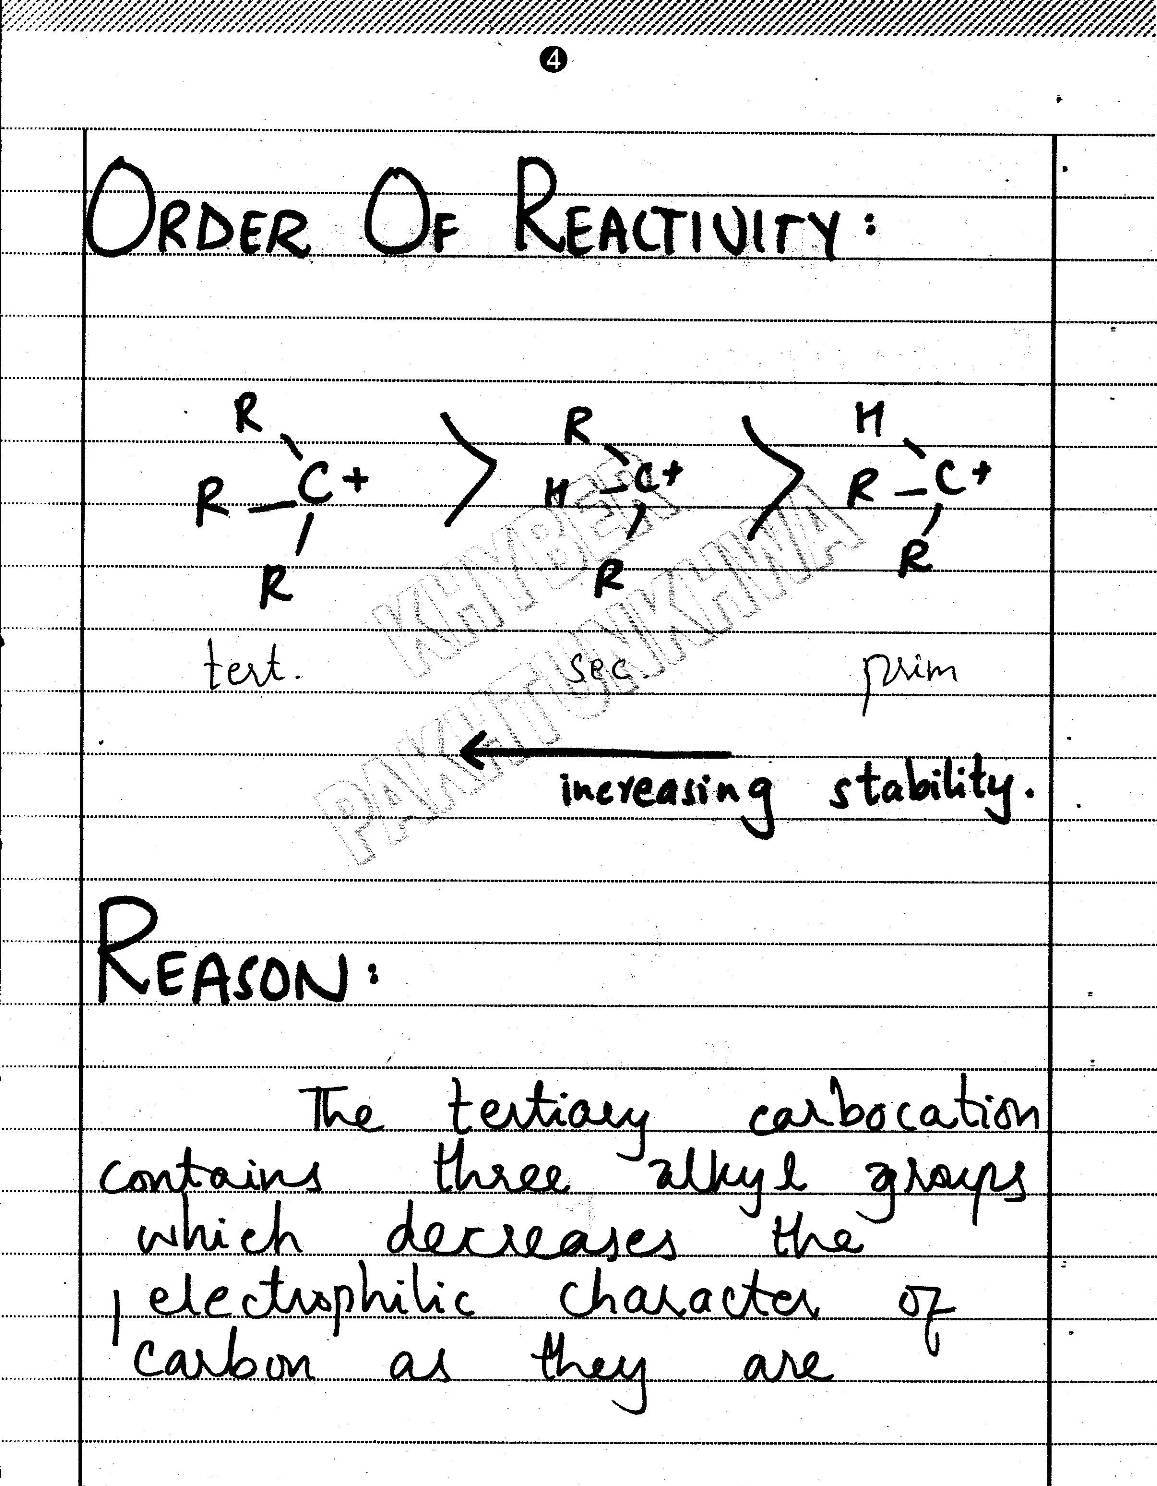 4
ORDER OF REACTIVITY:
R R H
R - C + > H - C + > R - C +
R R R
tert. sec. prim
increasing stability.
REASON:
The tertiary carbocation
contains three alkyl groups
which decreases the
electrophilic character of
carbon as they are
KHYBER
PAKHTUNKHWA